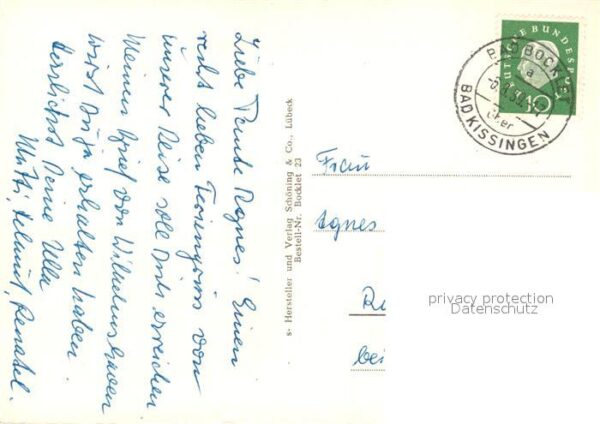 Liebe Tante Agnes! Einen
recht lieben Feriengruss von
unserer Reise soll Dich erreichen.
Meinen Brief von Wilhelmshaven
wirst Du ja erhalten haben.
Herzlichst Deine Ulla
Mutti, Helmut, Renate.
s- Hersteller und Verlag Schöning & Co., Lübeck
Bestell-Nr. Bocklet 23
DEUTSCHE BUNDESPOST
10
BAD BOCK
a
über
BAD KISSINGEN
Frau
Agnes
bei
privacy protection
Datenschutz